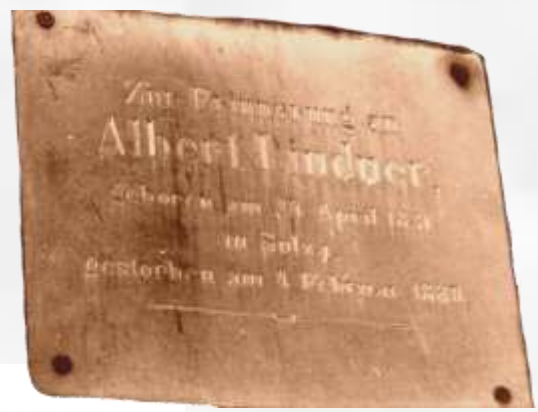 Zur Erinnerung an
Albert Lindner,
geboren am 24 April 1831
in Sulza,
gestorben am 4 Februar 1888